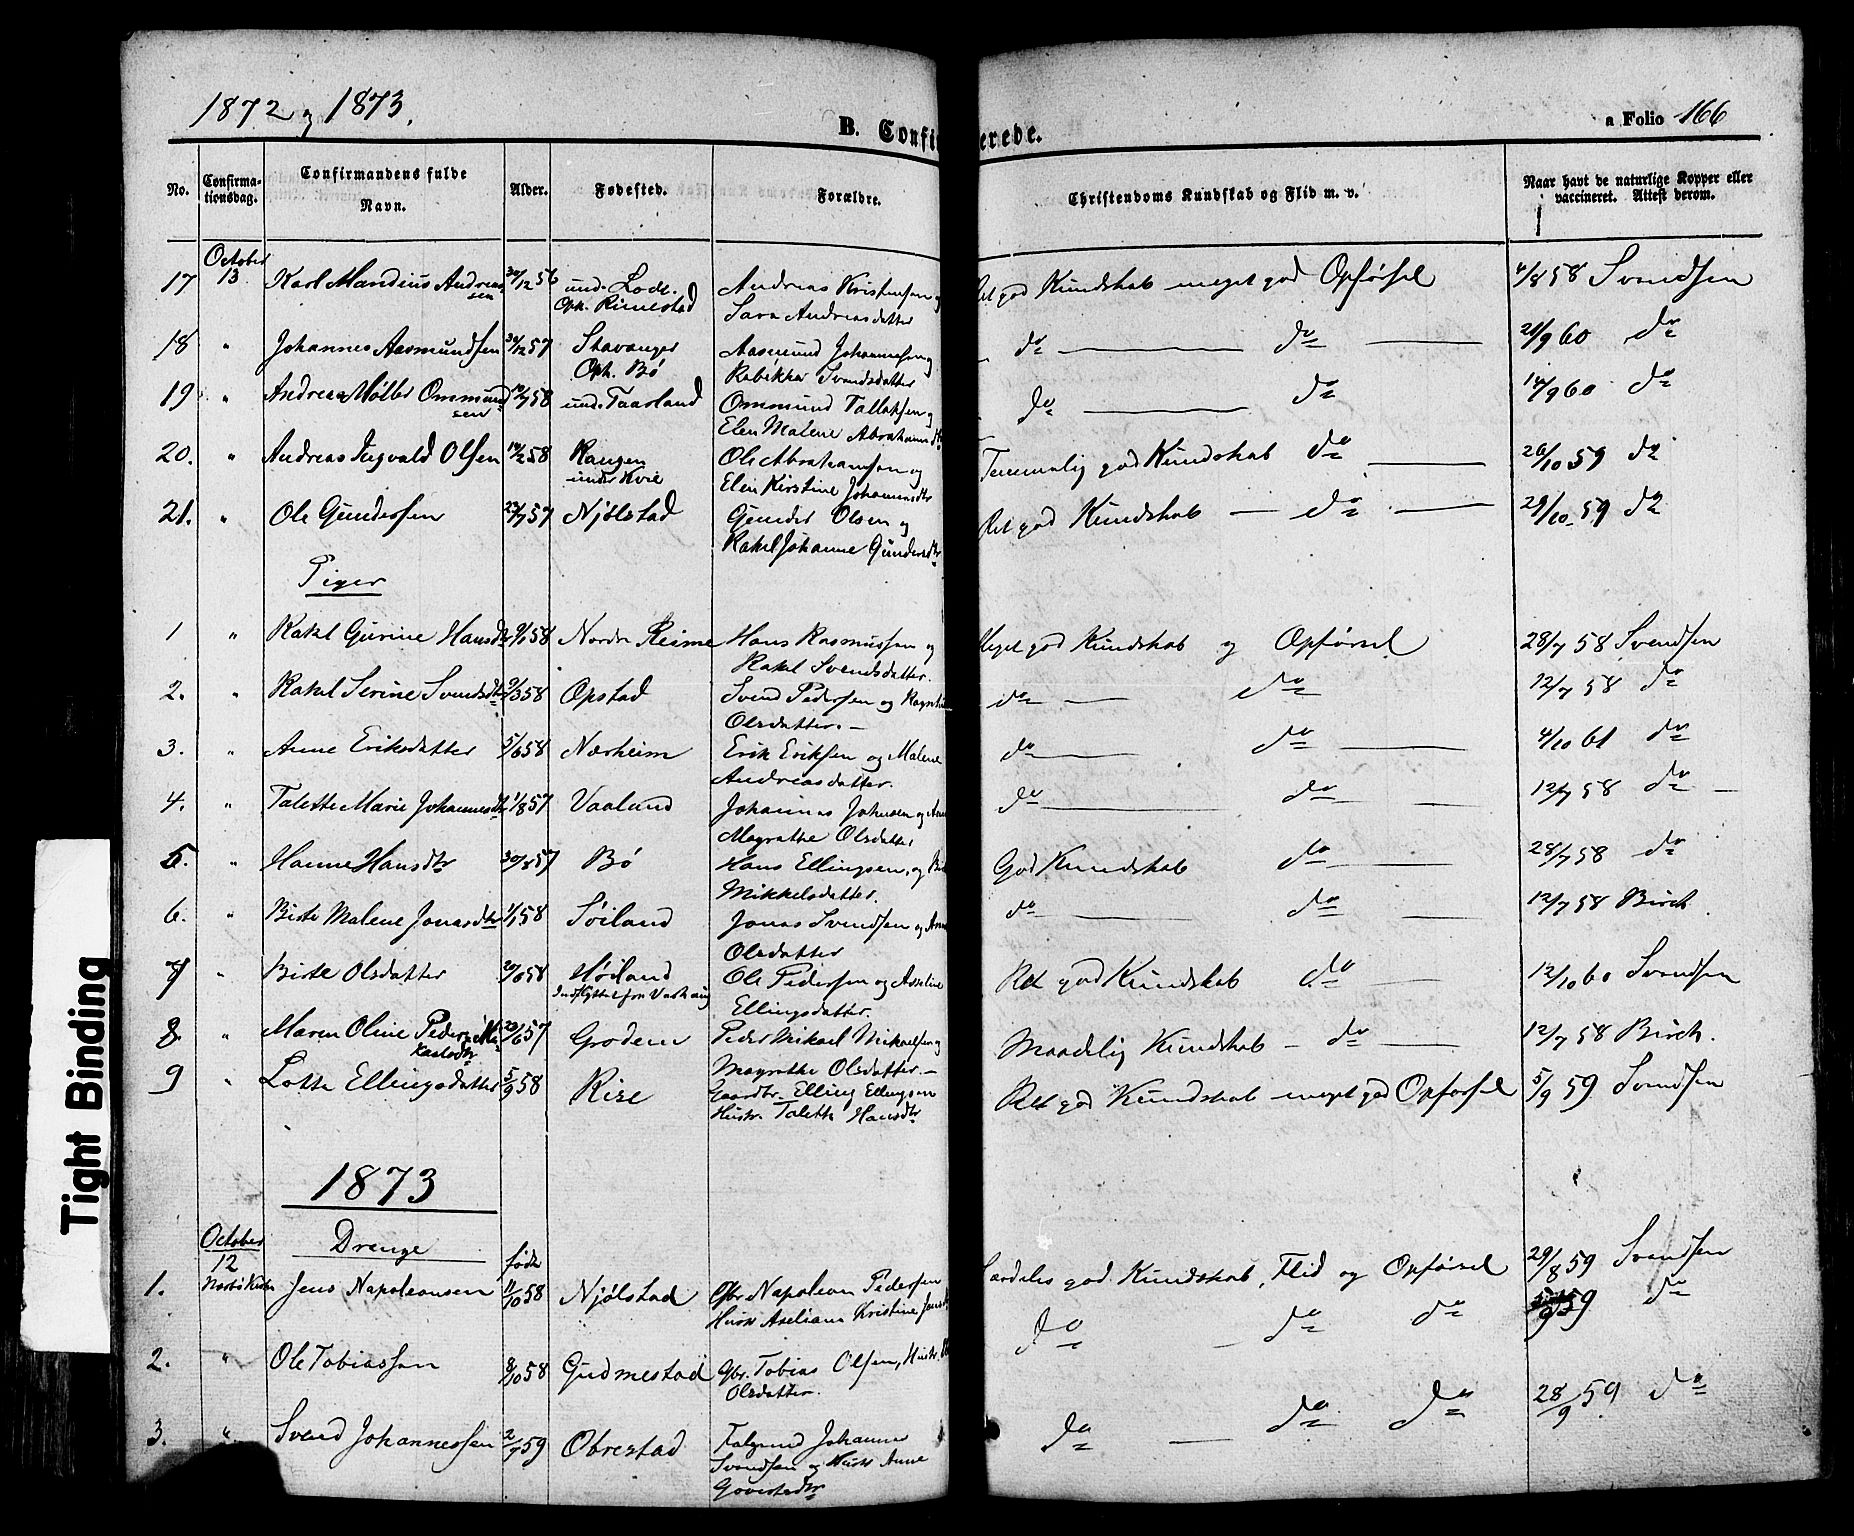 1872 og 1873.
B. Confirmerede.
a Folio 166
No. Confirma-tionsdag. Confirmandens fulde Navn. Alder. Fødested. Forældre. Christendoms Kundskab og Flid m. v. Naar havt de naturlige Kopper eller vaccineret. Attest derom.
October
17 13 Karl Mandius Andreas 30/12 56 und. Lode. Andreas Kristensen og Ret god Kundskab meget god Opførsel 4/8 58 Svendsen
sen Oph. Rimestad Sara Andreasdatter
18 " Johannes Aasmundsen 30/12 57 Stavanger Aasmund Johannesen og do do 21/9 60 do
Oph. Bø Rebekka Svendsdatter
19 " Andreas Møller Ommund 58 und. Taarland Ommund Tallaksen og do do 14/9 60 do
sen Elen Malene Abrahamsdtr
20. " Andreas Ingvald Olsen 58 Rangen Ole Abrahamsen og Temmelig god Kundskab do 26/10 59 do
under Kvie Elen Kirstine Johannesdtr
21. " Ole Gundersen 23/7 57 Njølstad Gunder Olsen og Ret god Kundskab — do 29/10 59 do
Rakel Johanne Gundersdtr
Piger
1 " Rakel Gurine Hansdtr 9/1 58 Nordre Reime Hans Rasmussen og Meget god Kundskab og Opførsel 28/7 58 Svendsen
Rakel Svendsdatter.
2. " Rakel Serine Svendsdtr 9/3 58 Opstad Svend Pedersen og do do 12/7 58 do
Olsdatter. —
3. " Anne Eriksdatter 5/6 58 Nærheim Erik Eriksen og Malene do do 4/10 61 do
Andreasdatter.
4. " Talette Marie Johannesdtr 1/8 57 Vaaland Johannes Johnsen og Anne do do 12/7 58 do —
Magrethe Olsdatter
5. " Hanne Hansdtr 30/8 57 Bø Hans Ellingsen, og God Kundskab do 28/7 58 do
Mikkelsdatter.
6. " Birte Malene Jonasdtr 1/1 58 Søiland Jonas Svendsen og Anne do do 12/7 58 Birch.
Olsdatter
7 " Birte Olsdatter 2/6 58 Høiland Ole Pedersen og Asseline Ret god Kundskab do 12/10 60 Svendsen
Indflyttet fra Varhaug Ellingsdatter.
8. " Maren Oline Peder Mi 23/6 57 Grødem Peder Mikael Mikaelsen og Maadelig Kundskab — do 12/7 58 Birch.
kaelsdtr Magrethe Olsdatter —
9 " Lotte Ellingsdatter 5/9 58 Rise Gaardbr. Elling Ellingsen Ret god Kundskab meget god Opførsel 5/9 59 Svendsen
Hustr. Talette Hansdtr
1873
October Drenge født
12
1. Nærbø Kirke Jens Napoleonsen 11/10 58 Njølstad Gbr. Napoleon Pedersen Særdeles god Kundskab, Flid og Opførsel 29/8 59 Svendsen
Hustr Axeliane Kristine
2. " Ole Tobiassen 8/10 58 Gudmestad Gbr. Tobias Olsen, Hustr. do do do 59 do
Olsdatter.
3. " Svend Johannessen 2/7 59 Obrestad Johannes do do do 28/9 59 do
Svendsen og Hustr Anne
Goverstadtr
Tight Binding